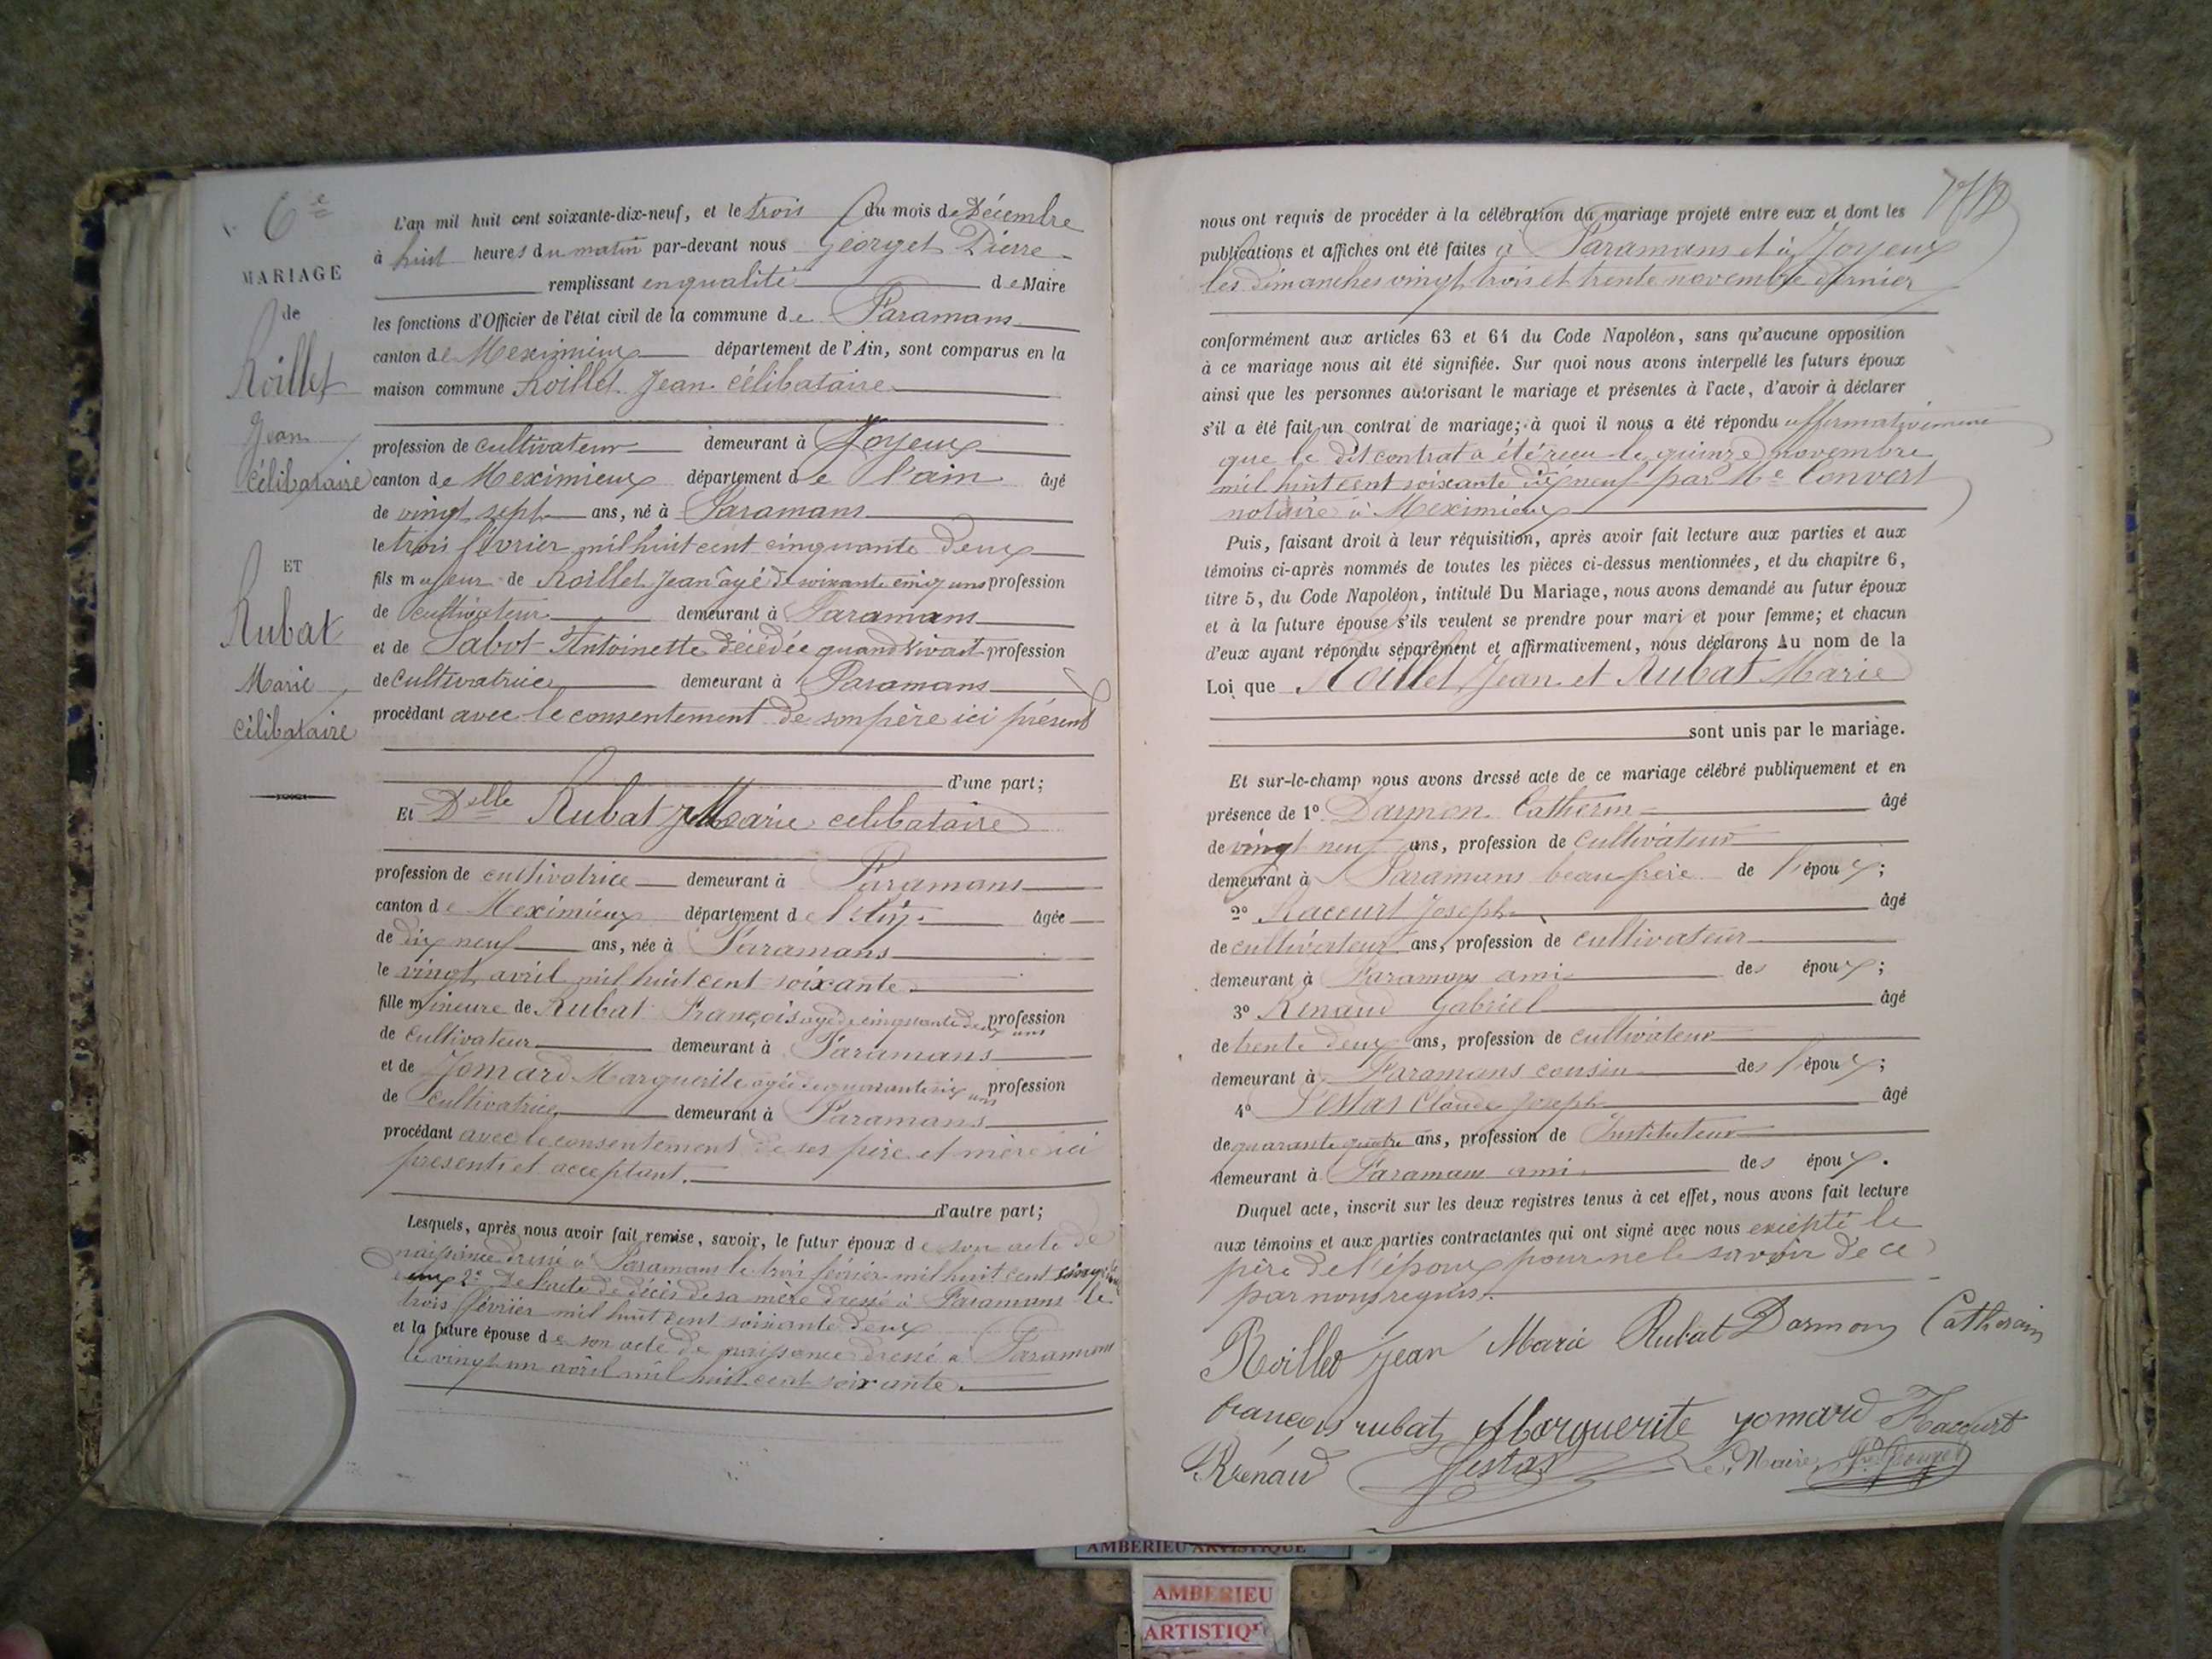 6e
MARIAGE
de
Roillet
Jean
célibataire
ET
Rubat
Marie
célibataire
L'an mil huit cent soixante-dix-neuf, et le trois du mois de Décembre
à huit heures du matin par-devant nous Georget Pierre
remplissant en qualité de Maire
les fonctions d'Officier de l'état civil de la commune de Faramans
canton de Meximieux département de l'Ain, sont comparus en la
maison commune Roillet Jean célibataire
profession de cultivateur demeurant à Joyeux
canton de Meximieux département de l'ain âgé
de vingt sept ans, né à Faramans
le trois février mil huit cent cinquante deux
fils majeur de Roillet Jean âgé de soixante cinq ans profession
de cultivateur demeurant à Faramans
et de Sabot Antoinette décédée quand vivait profession
de cultivatrice demeurant à Faramans
procédant avec le consentement de son père ici présent
d'une part;
Et Delle Rubat Marie célibataire
profession de cultivatrice demeurant à Faramans
canton de Meximieux département de l'Ain âgée
de dix neuf ans, née à Faramans
le vingt avril mil huit cent soixante
fille mineure de Rubat François agé de cinquante deux ans profession
de cultivateur demeurant à Faramans
et de Jomard Marguerite agée de quarante six ans profession
de cultivatrice demeurant à Faramans
procédant avec le consentement de ses père et mère ici
présents et acceptant.
d'autre part;
Lesquels, après nous avoir fait remise, savoir, le futur époux de son acte de
naissance dressé à Faramans le trois février mil huit cent cinquante
deux 2e de l'acte de décès de sa mère dressé à Faramans le
trois février mil huit cent soixante deux
et la future épouse de son acte de naissance dressé à Faramans
le vingt un avril mil huit cent soixante.
nous ont requis de procéder à la célébration du mariage projeté entre eux et dont les
publications et affiches ont été faites à Faramans et à Joyeux
les dimanches vingt trois et trente novembre dernier
conformément aux articles 63 et 64 du Code Napoléon, sans qu'aucune opposition
à ce mariage nous ait été signifiée. Sur quoi nous avons interpellé les futurs époux
ainsi que les personnes autorisant le mariage et présentes à l'acte, d'avoir à déclarer
s'il a été fait un contrat de mariage; à quoi il nous a été répondu affirmativement
que le dit contrat a été reçu le quinze novembre
mil huit cent soixante dix neuf par Me Convert
notaire à Meximieux
Puis, faisant droit à leur réquisition, après avoir fait lecture aux parties et aux
témoins ci-après nommés de toutes les pièces ci-dessus mentionnées, et du chapitre 6,
titre 5, du Code Napoléon, intitulé Du Mariage, nous avons demandé au futur époux
et à la future épouse s'ils veulent se prendre pour mari et pour femme; et chacun
d'eux ayant répondu séparément et affirmativement, nous déclarons Au nom de la
Loi que Roillet Jean et Rubat Marie
sont unis par le mariage.
Et sur-le-champ nous avons dressé acte de ce mariage célébré publiquement et en
présence de 1° Darmon Catherin âgé
de vingt neuf ans, profession de cultivateur
demeurant à Faramans beau frère de l'époux;
2° Raccurt Joseph âgé
de cultivateur ans, profession de cultivateur
demeurant à Faramans ami des époux;
3° Renaud Gabriel âgé
de trente deux ans, profession de cultivateur
demeurant à Faramans cousin de l'époux;
4° Lestas Claude Joseph âgé
de quarante quatre ans, profession de Instituteur
demeurant à Faramans ami des époux.
Duquel acte, inscrit sur les deux registres tenus à cet effet, nous avons fait lecture
aux témoins et aux parties contractantes qui ont signé avec nous excepté le
père de l'époux pour ne le savoir de ce
par nous requis.
Roillet jean Marie Rubat Darmon Catherin
francois rubat Marguerite jomard Raccurt
Renaud Lestas Le Maire Georget
AMBERIEU ARTISTIQUE
AMBERIEU
ARTISTIQ